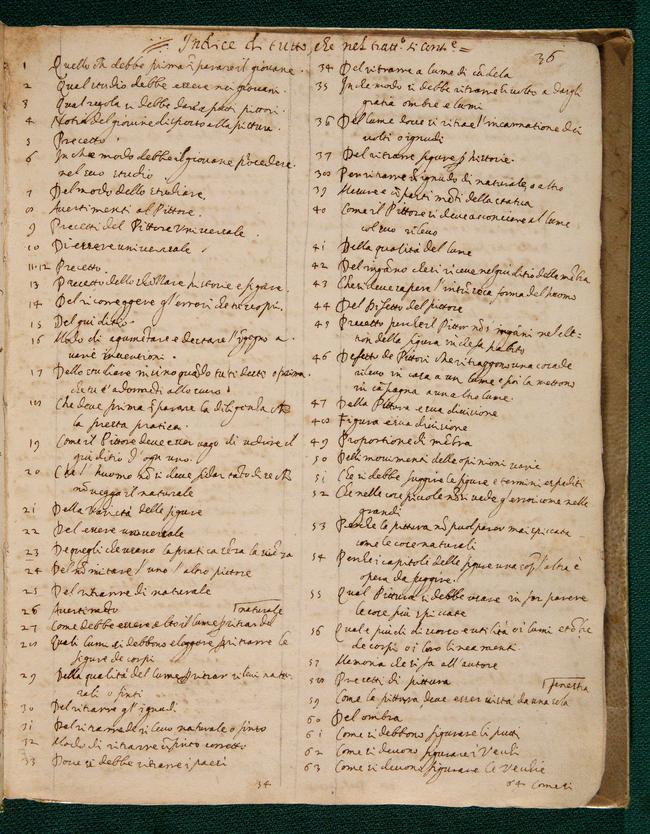 Indice di tutto, che nel tratt.º si contᵉ. =
36
1 Quello che debbe prima īparare il giovane.
2 Qual studio debbe essere nei giovani.
3 Qual regola si debbe dare a putti pittori.
4 Notitia del giovine disposto alla pittura.
5 Precetto.
6 In che modo debbe il giovane procedere
nel suo studio.
7 Del modo dello studiare.
8 Avertimenti al Pittore.
9 Precetti del Pittore Universale.
10 Di essere universale.
11.12 Precetto.
13 Precetto dello schizzare historie e figure.
14 Del riconeggere gl'errori de
15 Del giuditio.
16 Modo di agumētare e destare l'īgegno a
varie invenzioni.
17 Dello studiare insino quādo tu ti desti o prima
che tu t'adormēti allo scuro
18 Che deve prima īparare la diligenza che
la presta pratica.
19 Come il Pittore deve esser vago di udire il
giuditio d'ogni uno.
20 Che l'huomo nō si deve fidar tāto di se che
nō vegga il naturale
21 Della varietà delle figure
22 Del essere universale
23 De quegli che usano la pratica sēza la siēza
24 Del nō imitare l'uno l'altro pittore
25 Del ritrarre di naturale
26 Avertimēto
27 Come debbe essere alto il lume p̄ ritrar da
naturale
28 Quali lumi si debbono eleggere p̄ ritrarre le
figure de corpi
29 Della qualità del lume p̄ ritrar rilievi natu-
rali o finti
30 Del ritrarre gl'ignudi
31 Del ritrarre di rilievo naturale o finto
32 Modo di ritrarre
33 Dove si debbe ritrarre i paesi
34
34 Del ritrarre a lume di cādela
35 In che modo si debbe ritrarre il volto a dargli
gratia ombre e lumi
36 Del lume dove si ritrae l'incarnatione dei
volti o ignudi
37 Del ritrarre figure p̄ historie.
38 Per ritrarre ī ignudo di naturale o altro
39 Misure e cōparti mēti della statua
40 Come il Pittore si deve aconciare al lume
col suo rilevo
41 Della qualità del lume
42 Del ingāno che si riceve nel giuditio delle mēbra
43 Che si deve sapere l'intrinseca forma del huomo
44 Del Difetto del pittore
45 Precetto perche il Pittor nō s'ingāni nel elet-
tion della figura in che fa l'abito
46 Difetto de Pittori che ritraggono una cosa de
rilievo in casa a un lume e poi la mettono
in cāpagna a un altro lume.
47 Della Pittura e sua divisione
48 Figura e sua divisione
49 Proportione di mēbra
50 Delli movimenti delle opinioni varie
51 Che si debbe fuggire le figure e termini espediti
52 Che nelle cose piccole nō si vede gl'errori come nelle
grandi
53 Perche la pittura nō può parer mai spiccata
come le cose naturali
54 Perche i capitoli delle figure una sopra l'altra è
opera da fuggire.
55 Qual Pittura si debbe usare in far parere
le cose più spiccate
56 Qual e più di discorso e utilità o i lumi et ōbre
de corpi o i loro lineamenti.
57 Memoria che si fa all'autore
58 Precetti di pittura
59 Come la pittura deve esser vista da una sola
fenestra
60 Del ombra
61 Come si debbono figurare li putti
62 Come si devono figurare i Vecchi
63 Come si devono figurare le Vecchie
64 Come si